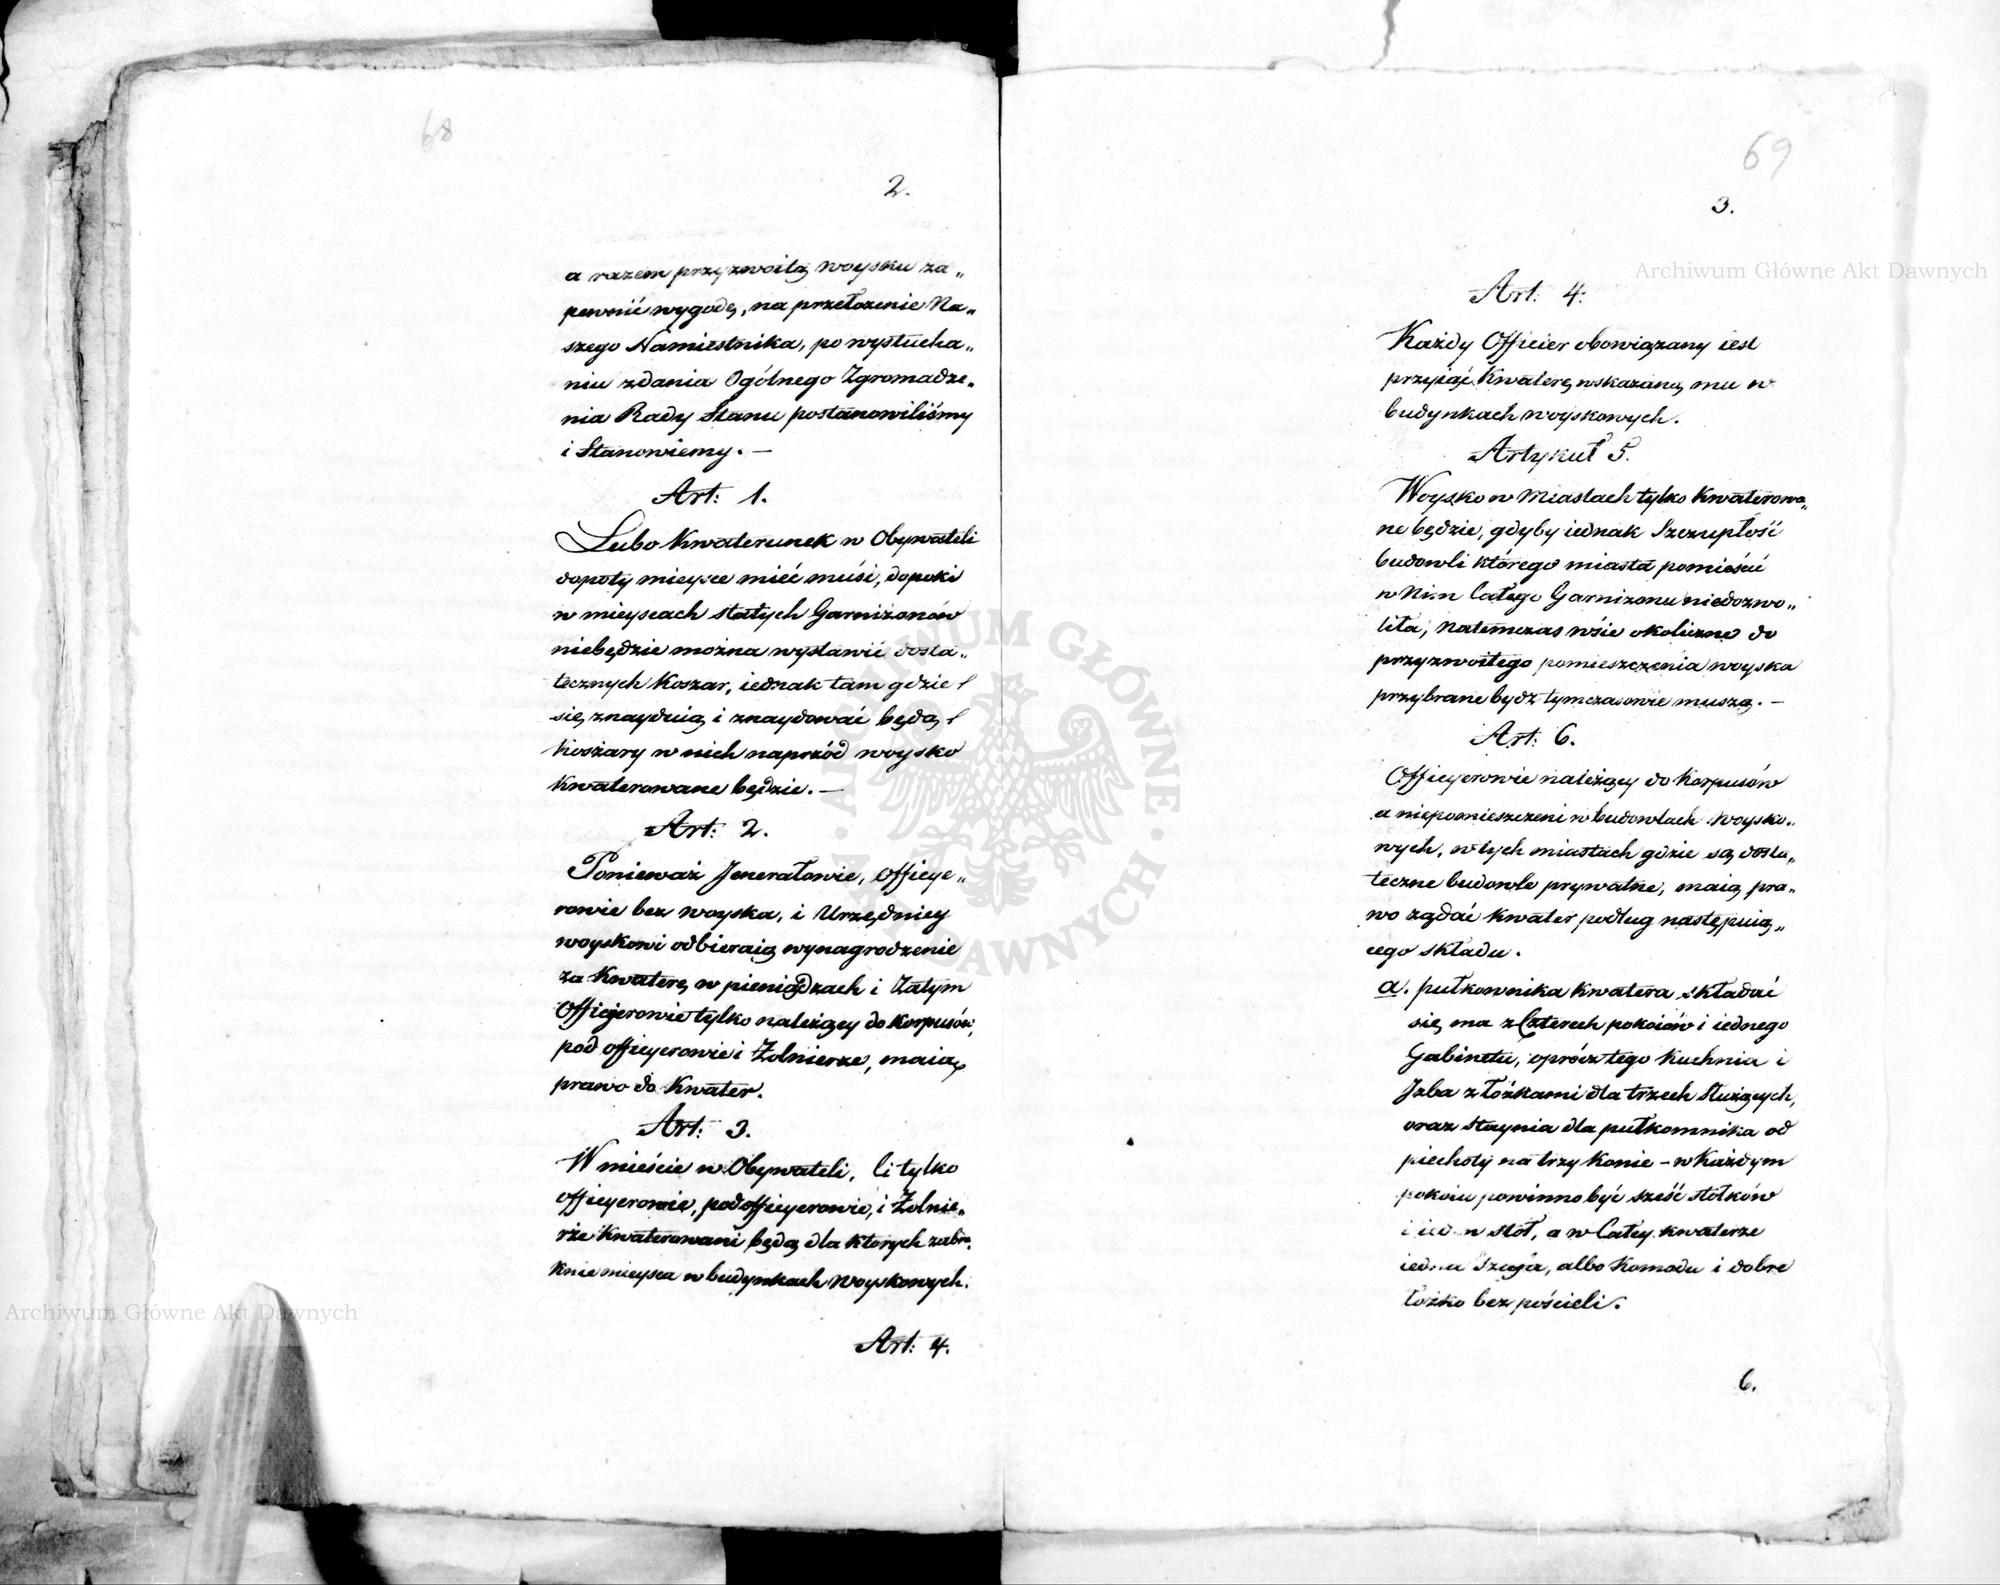 68
2.
a razem przyzwoitą woysku za„
pewnić wygodę, na przełożenie Na„
szego Namiestnika, po wysłucha„
niu zdania Ogólnego Zgromadze„
nia Rady Stanu postanowiliśmy
i Stanowiemy. —
Art: 1.
Lubo Kwaterunek w Obywateli
dopoty mieysce mieć musi, dopoki
w mieyscach stałych Garnizonów
niebędzie można wystawić dosta„
tecznych Koszar, iednak tam gdzie
się znayduią i znaydować będą
Koszary w nich naprzód woysko
Kwaterowane będzie. —
Art: 2.
Ponieważ Jenerałowie, Officye„
rowie bez woyska, i Urzędnicy
woyskowi odbieraią wynagrodzenie
za Kwaterę w pieniądzach i Zatym
Officyerowie tylko należący do korpusów,
pod officyerowie i Żolnierze, maią
prawo do Kwater.
Art: 3.
W mieście w Obywateli, li tylko
officyerowie, podofficyerowie, i Żolnie„
rze Kwaterowani będą dla ktorych zabra„
knie mieysca w budynkach Woyskowych.
Art: 4.
69
3.
Art: 4.
Każdy Officier obowiązany iest
przyiąć Kwaterę wskazaną mu w
budynkach woyskowych.
Artykuł 5.
Woysko w Miastach tylko Kwaterowa„
ne będzie, gdyby iednak Szczupłość
budowli którego miasta pomieścić
w Nim Całego Garnizonu niedozwo„
liła, Natemczas wsie okoliczne do
przyzwoitego pomieszczenia woyska
przybrane bydz tymczasowie muszą. —
Art: 6.
Officyerowie należący do Korpusów
a niepomieszczeni w budowlach Woysko„
wych, w tych miastach gdzie są dosta„
teczne budowle prywatne, maią pra„
wo żądać Kwater podług następuią„
cego składu.
a. pułkownika Kwatera składać
się ma z Czterech pokoiów i iednego
Gabinetu, oprócz tego Kuchnia i
Izba z łóżkami dla trzech Służących,
oraz Staynia dla pułkownika od
piechoty na trzy Konie – w Każdym
pokoiu powinno być sześć stołków
i ieden stół, a w Całey kwaterze
iedna Szafa, albo Komoda i dobre
łożko bez pościeli.
6.
Archiwum Główne Akt Dawnych
ARCHIWUM GŁÓWNE AKT DAWNYCH
Archiwum Główne Akt Dawnych